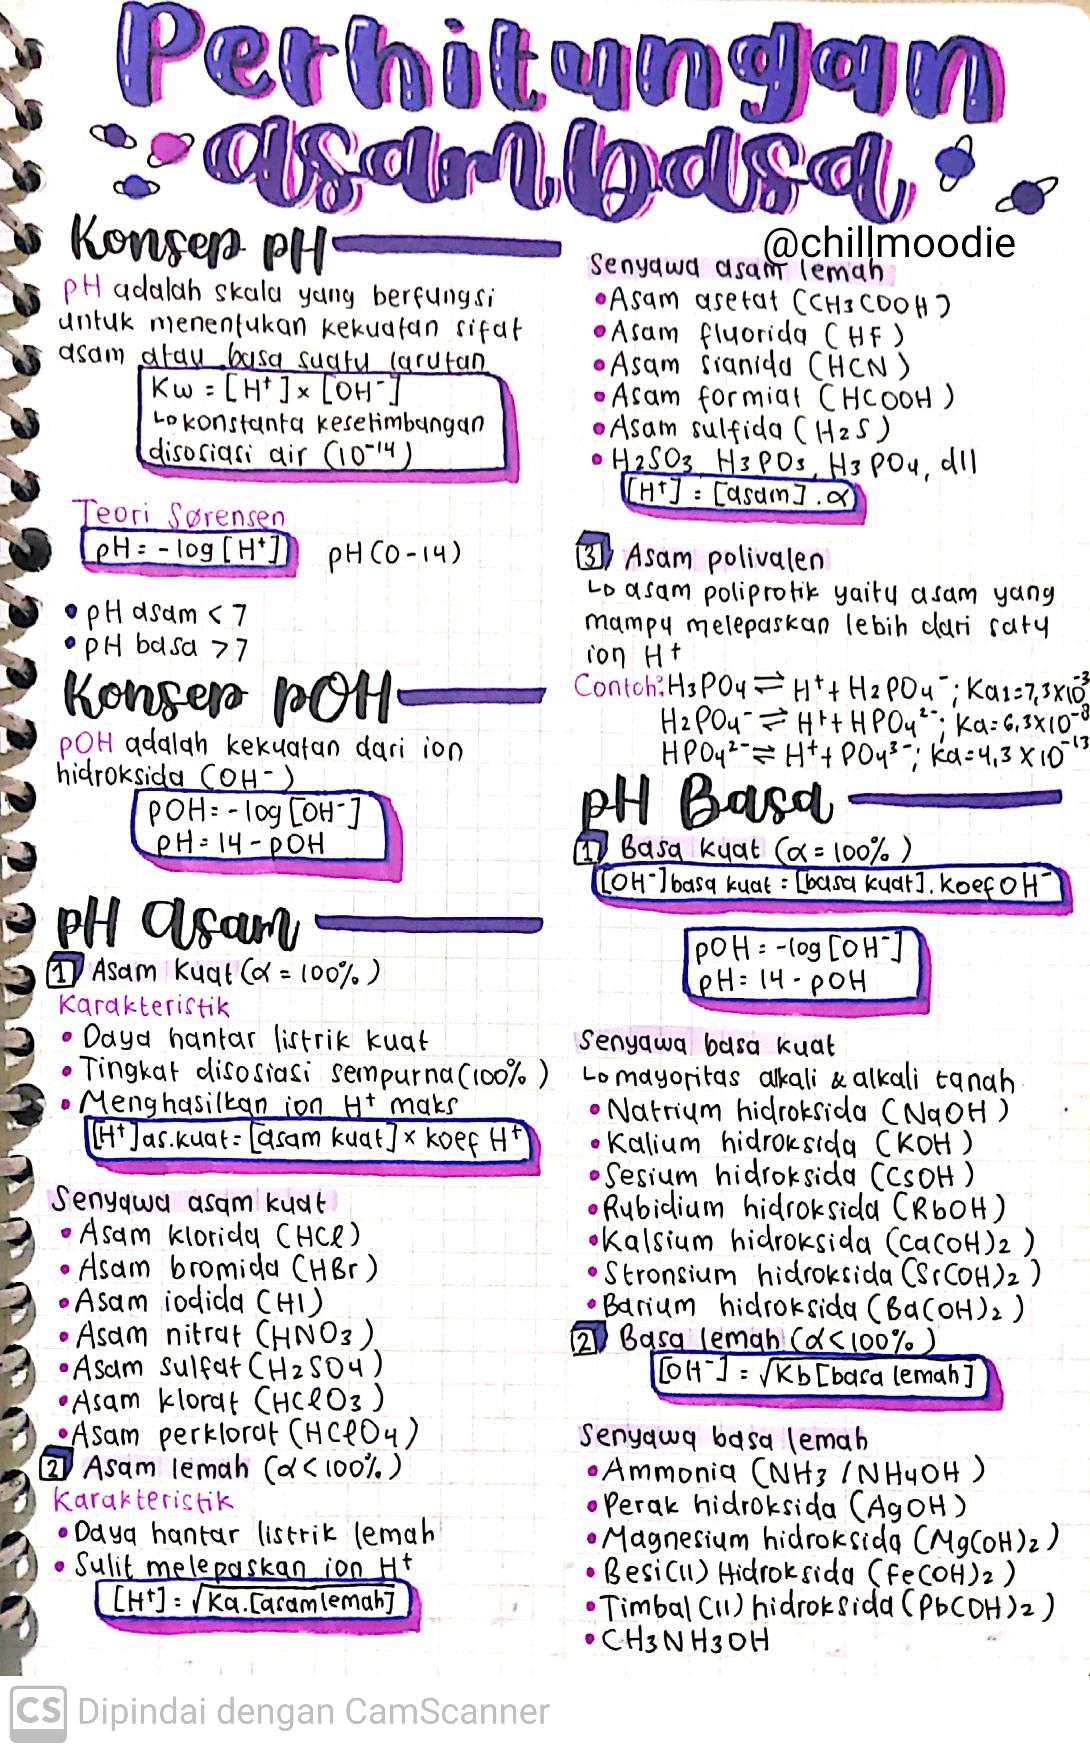 Perhitungan
asam basa
@chillmoodie
Konsep pH
pH adalah skala yang berfungsi
untuk menentukan kekuatan sifat
asam atau basa suatu larutan
Kw = [H⁺] x [OH⁻]
↳ konstanta kesetimbangan
disosiasi air (10⁻¹⁴)
Teori Sørensen
pH = - log [H⁺]
pH (0 - 14)
• pH asam < 7
• pH basa > 7
Konsep pOH
pOH adalah kekuatan dari ion
hidroksida (OH⁻)
pOH = - log [OH⁻]
pH = 14 - pOH
pH asam
1 Asam Kuat (α = 100%)
Karakteristik
• Daya hantar listrik kuat
• Tingkat disosiasi sempurna (100%)
• Menghasilkan ion H⁺ maks
[H⁺] as.kuat = [asam kuat] x koef H⁺
Senyawa asam kuat
• Asam klorida (HCl)
• Asam bromida (HBr)
• Asam iodida (HI)
• Asam nitrat (HNO₃)
• Asam sulfat (H₂SO₄)
• Asam klorat (HClO₃)
• Asam perklorat (HClO₄)
2 Asam lemah (α < 100%)
Karakteristik
• Daya hantar listrik lemah
• Sulit melepaskan ion H⁺
[H⁺] = √Ka.[asam lemah]
Senyawa asam lemah
• Asam asetat (CH₃COOH)
• Asam fluorida (HF)
• Asam sianida (HCN)
• Asam formiat (HCOOH)
• Asam sulfida (H₂S)
• H₂SO₃, H₃PO₃, H₃PO₄, dll
[H⁺] = [asam] . α
3 Asam polivalen
↳ asam poliprotik yaitu asam yang
mampu melepaskan lebih dari satu
ion H⁺
Contoh: H₃PO₄ ⇌ H⁺ + H₂PO₄⁻ ; Ka1 = 7,3 x 10⁻³
H₂PO₄⁻ ⇌ H⁺ + HPO₄²⁻ ; Ka = 6,3 x 10⁻⁸
HPO₄²⁻ ⇌ H⁺ + PO₄³⁻ ; Ka = 4,3 x 10⁻¹³
pH Basa
1 Basa kuat (α = 100%)
[OH⁻] basa kuat = [basa kuat] . koef OH⁻
pOH = -log [OH⁻]
pH = 14 - pOH
Senyawa basa kuat
↳ mayoritas alkali & alkali tanah
• Natrium hidroksida (NaOH)
• Kalium hidroksida (KOH)
• Sesium hidroksida (CsOH)
• Rubidium hidroksida (RbOH)
• Kalsium hidroksida (Ca(OH)₂)
• Stronsium hidroksida (Sr(OH)₂)
• Barium hidroksida (Ba(OH)₂)
2 Basa lemah (α < 100%)
[OH⁻] = √Kb [basa lemah]
Senyawa basa lemah
• Ammonia (NH₃ / NH₄OH)
• Perak hidroksida (AgOH)
• Magnesium hidroksida (Mg(OH)₂)
• Besi (II) Hidroksida (Fe(OH)₂)
• Timbal (II) hidroksida (Pb(OH)₂)
• CH₃NH₃OH
CS Dipindai dengan CamScanner